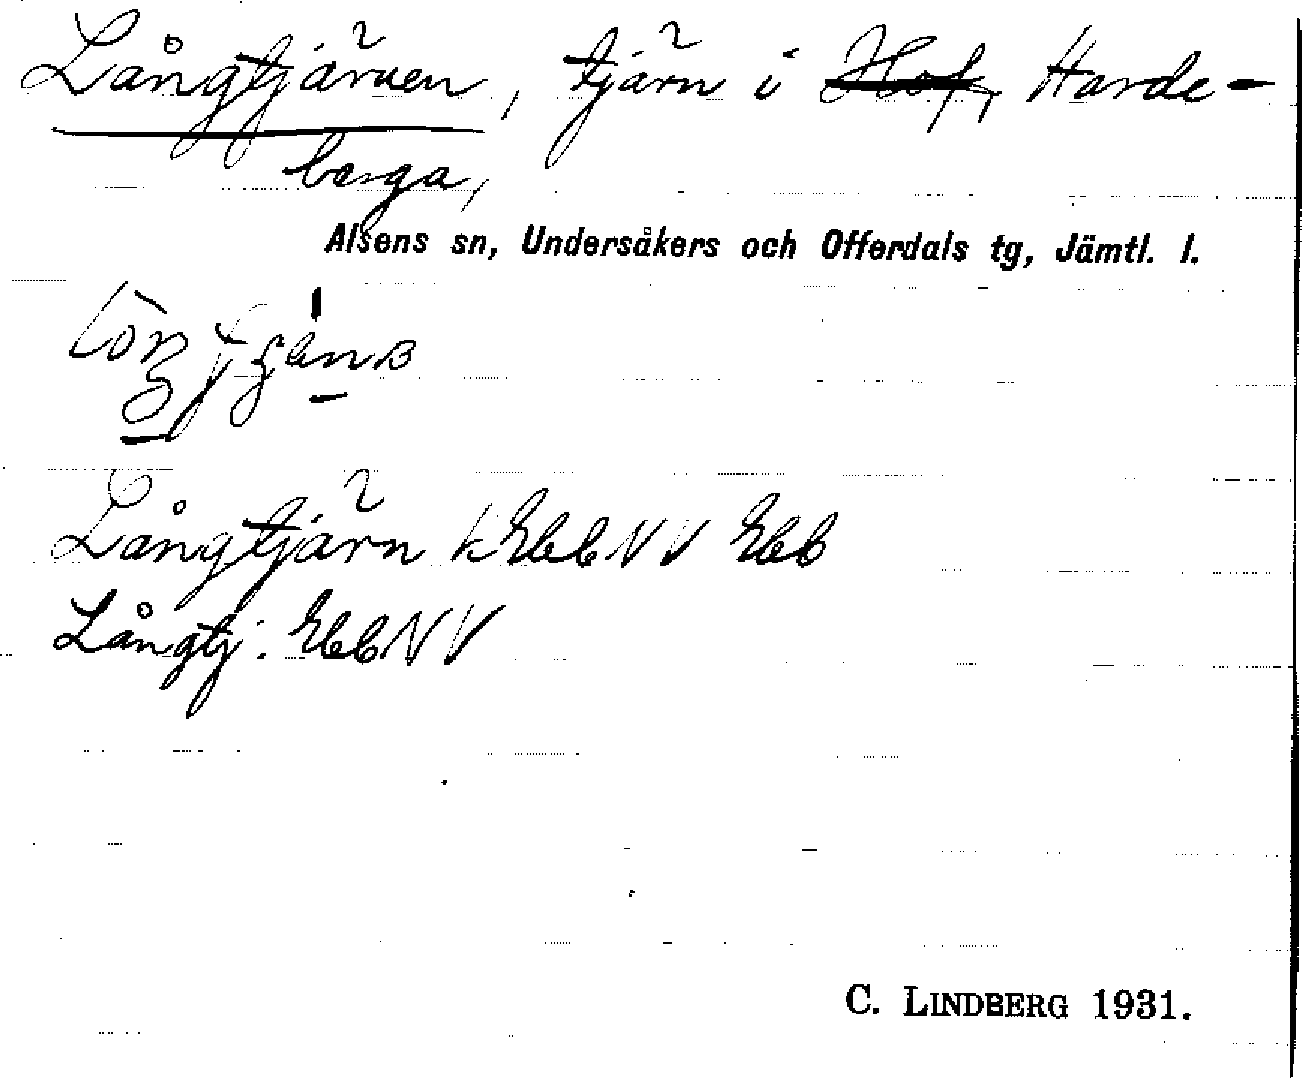 Långtjärnen, tjärn i Hof, Harde-
berga,
Alsens sn, Undersåkers och Offerdals tg, Jämtl. l.
Långtjärn k EbbNV Ebb
Långtj. EbbNV
C. LINDBERG 1931.